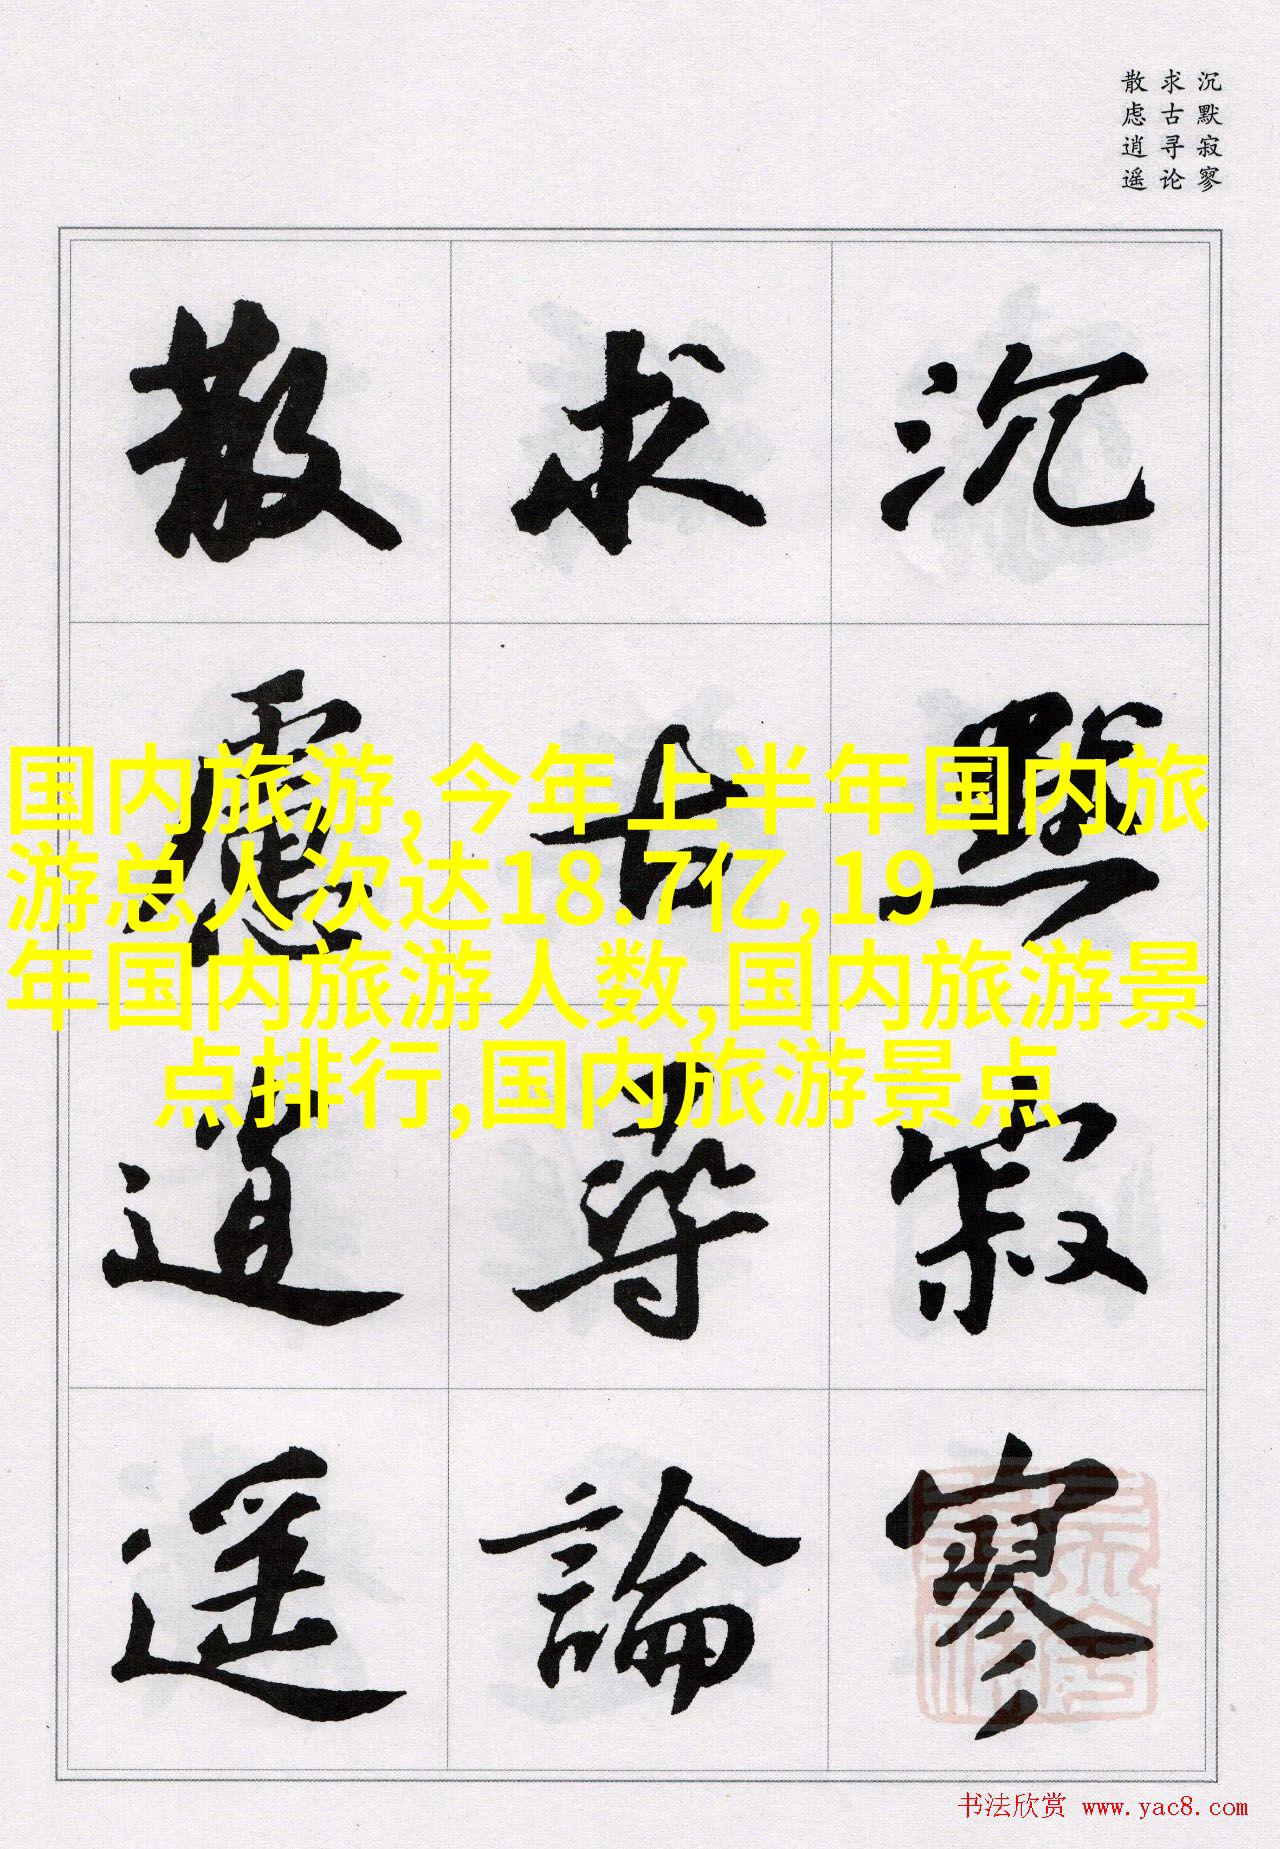 沉默寂寥
求古寻论
散虑逍遥
沉默寂寥
求古尋論
散慮逍遥
国内旅游,今年上半年国内旅
游总人次达18.7亿,19
年国内旅游人数,国内旅游景
点排行,国内旅游景点
书法欣赏 www.yac8.com